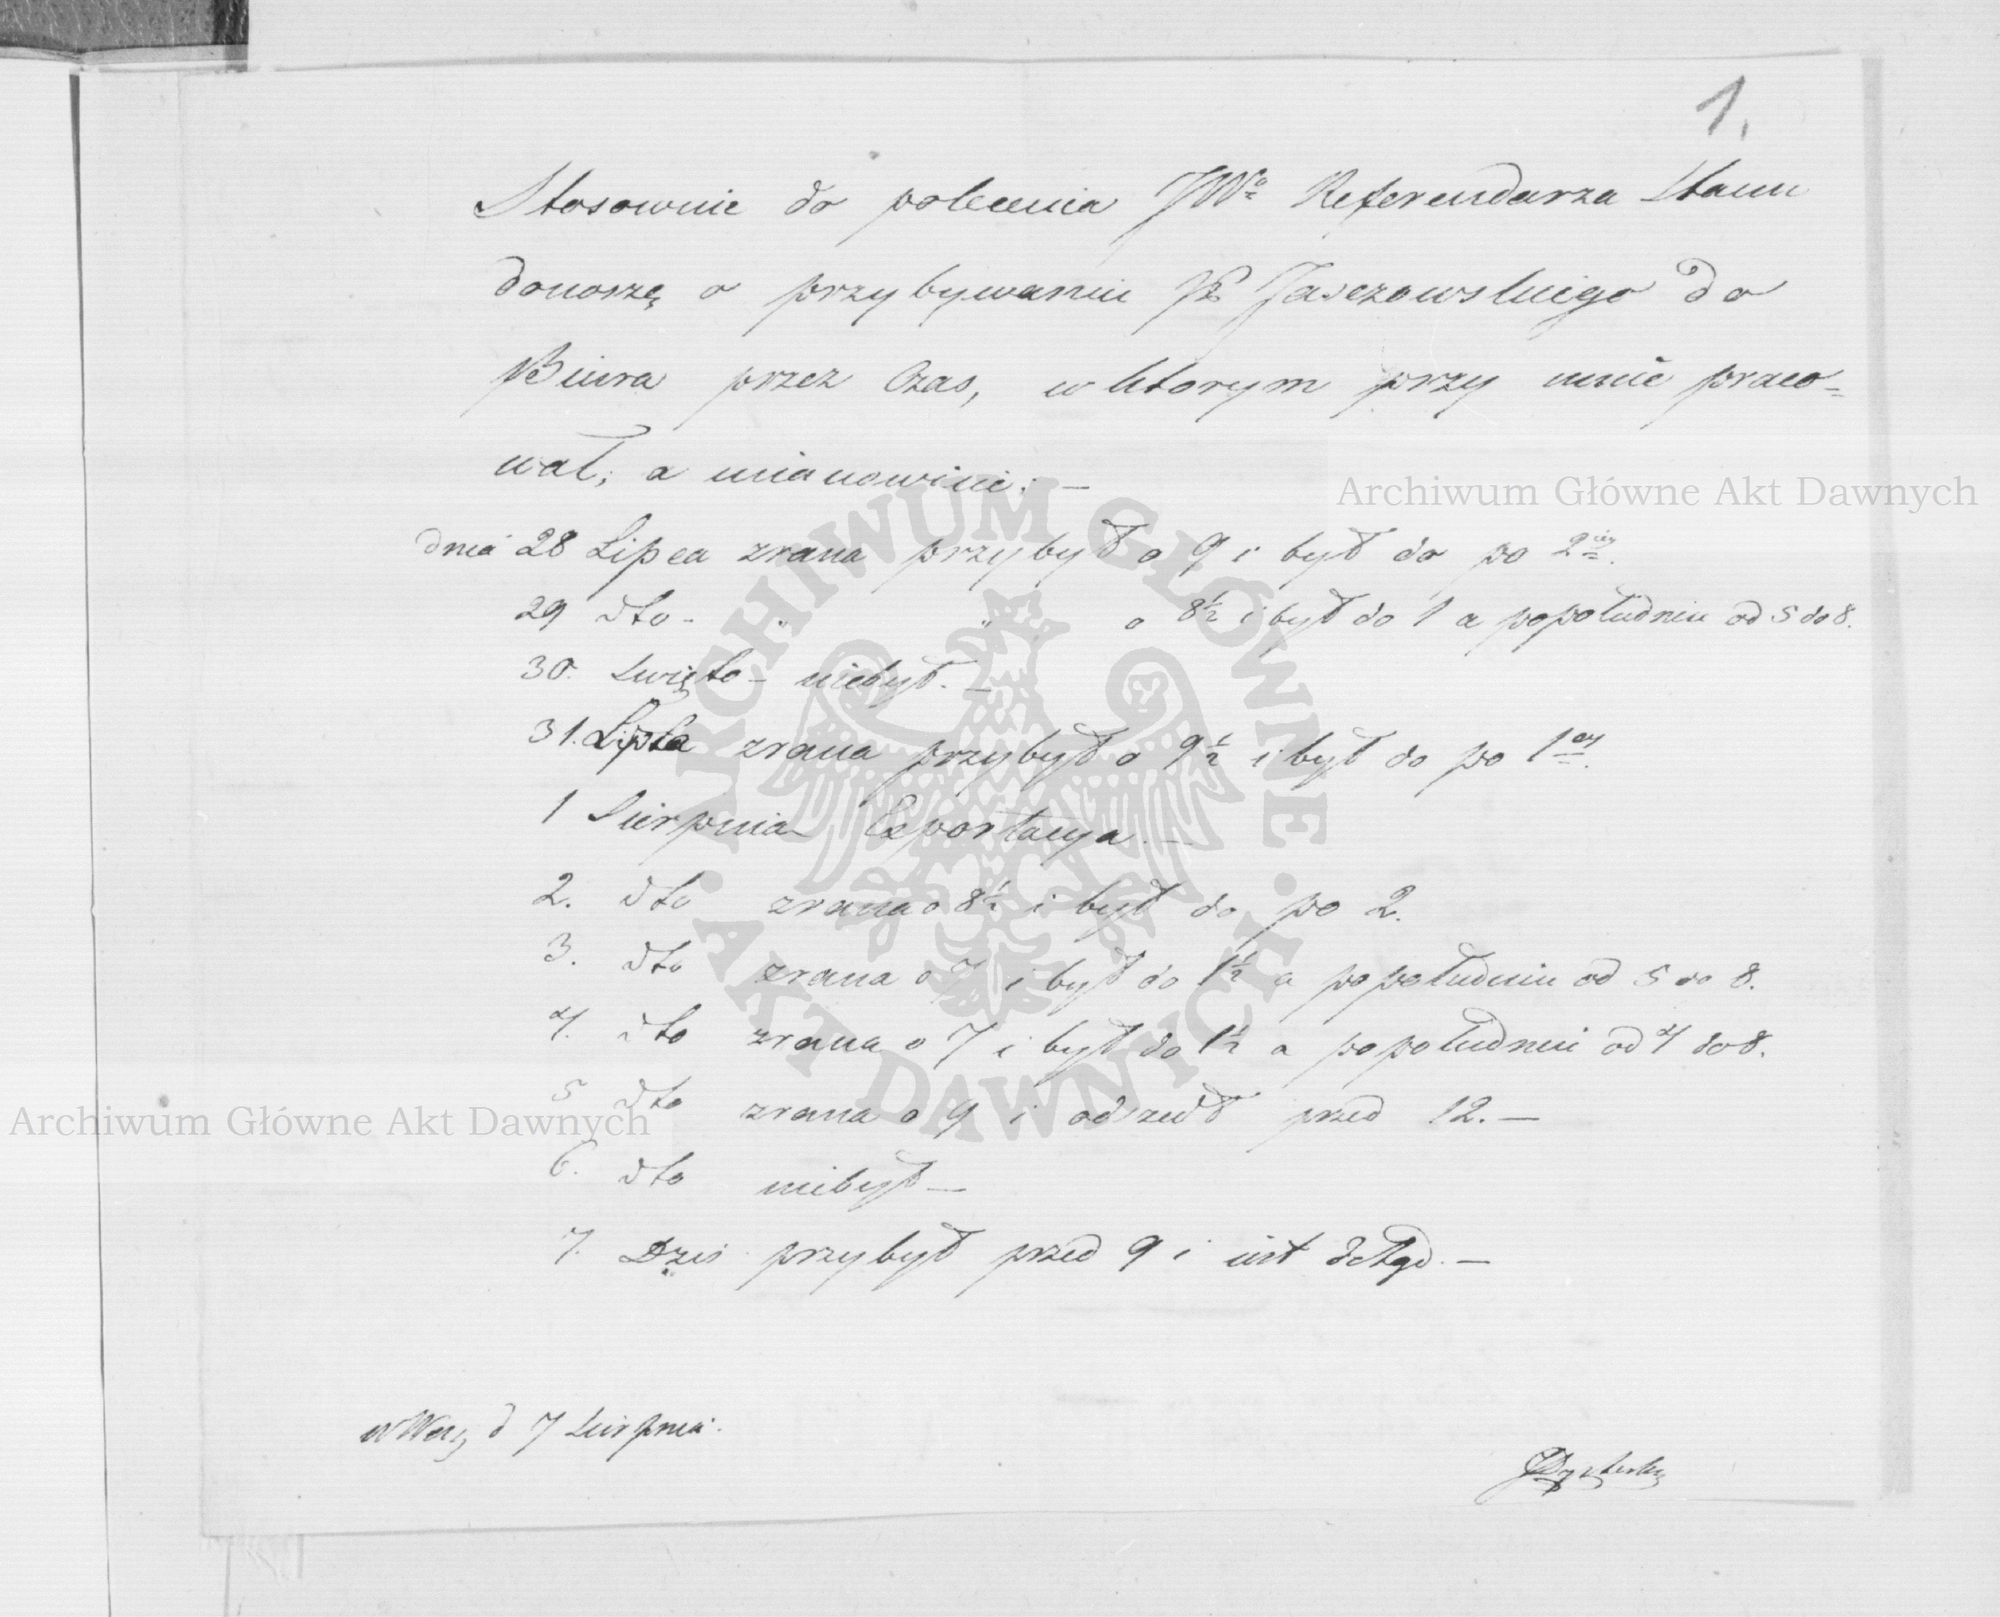 1.
Stosownie do polecenia JWo Referendarza Stanu
donoszę o przybywaniu P. Jaszczowskiego do
Biura przez czas, w ktorym przy mnie praco=
wał; a mianowicie: —
dnia 28 Lipca zrana przybył o 9 i był do po 2iej.
29 dto - " " o 8½ i był do 1 a popołudniu od 5 do 8.
30. Swięto – niebył. —
31. Lipca zrana przybył o 9½ i był do po 1ej.
1 Sierpnia Exportacya. —
2. dto zrana o 8½ i był do po 2.
3. dto zrana o 7 i był do 1½ a popołudniu od 5 do 8.
4. dto zrana o 7 i był do 1½ a popołudniu od 4 do 8.
5 dto zrana o 9 i odszedł przed 12. —
6. dto niebył —
7. Dziś przybył przed 9 i jest dotąd. —
d 7 Sierpnia.
Archiwum Główne Akt Dawnych
Archiwum Główne Akt Dawnych
ARCHIWUM GŁÓWNE • AKT DAWNYCH •